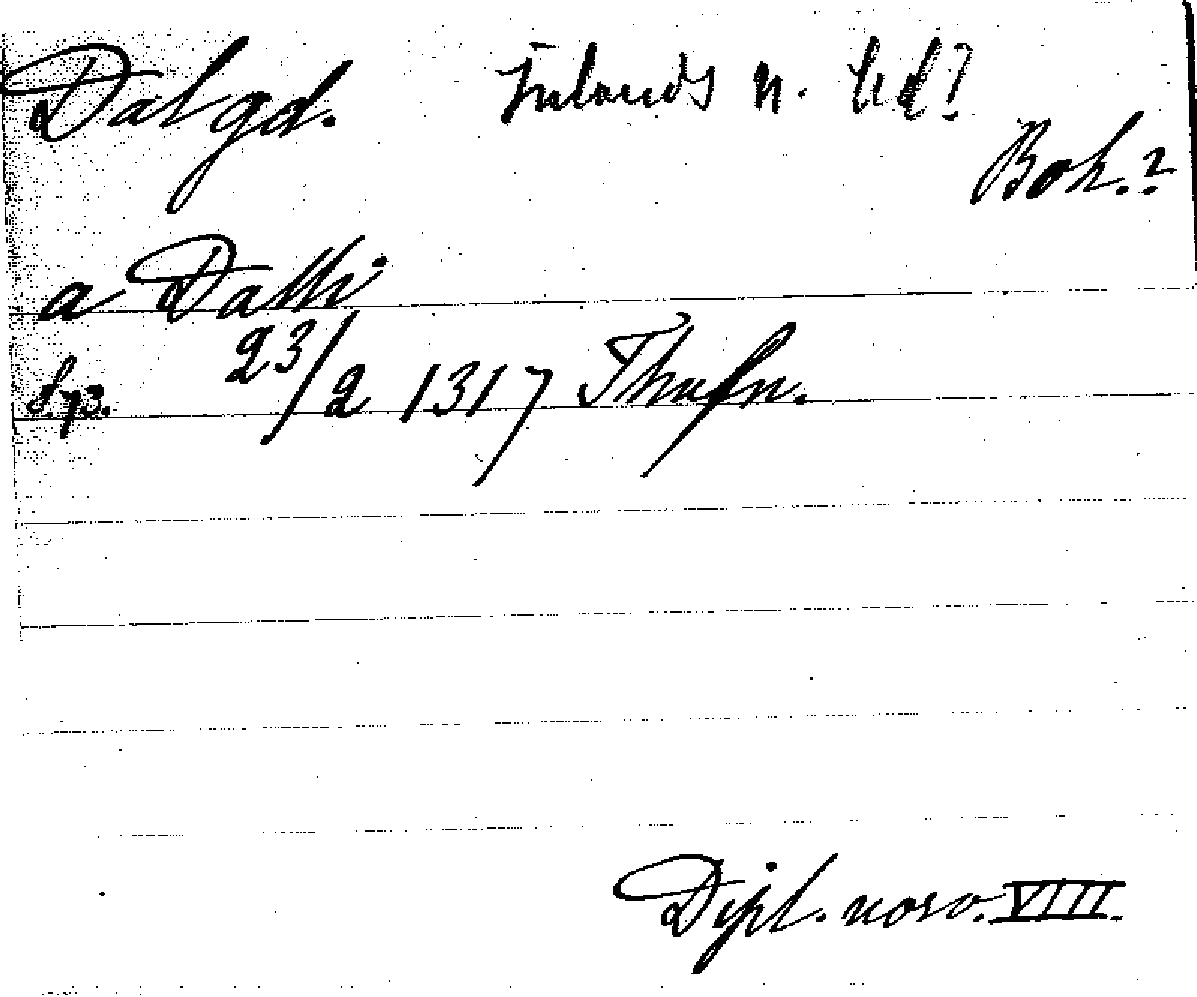 Dal gd. Inlands n. hd?
Boh.?
a Dalli
s. 73. 23/2 1317 Thufn.
Dipl. norv. VIII.